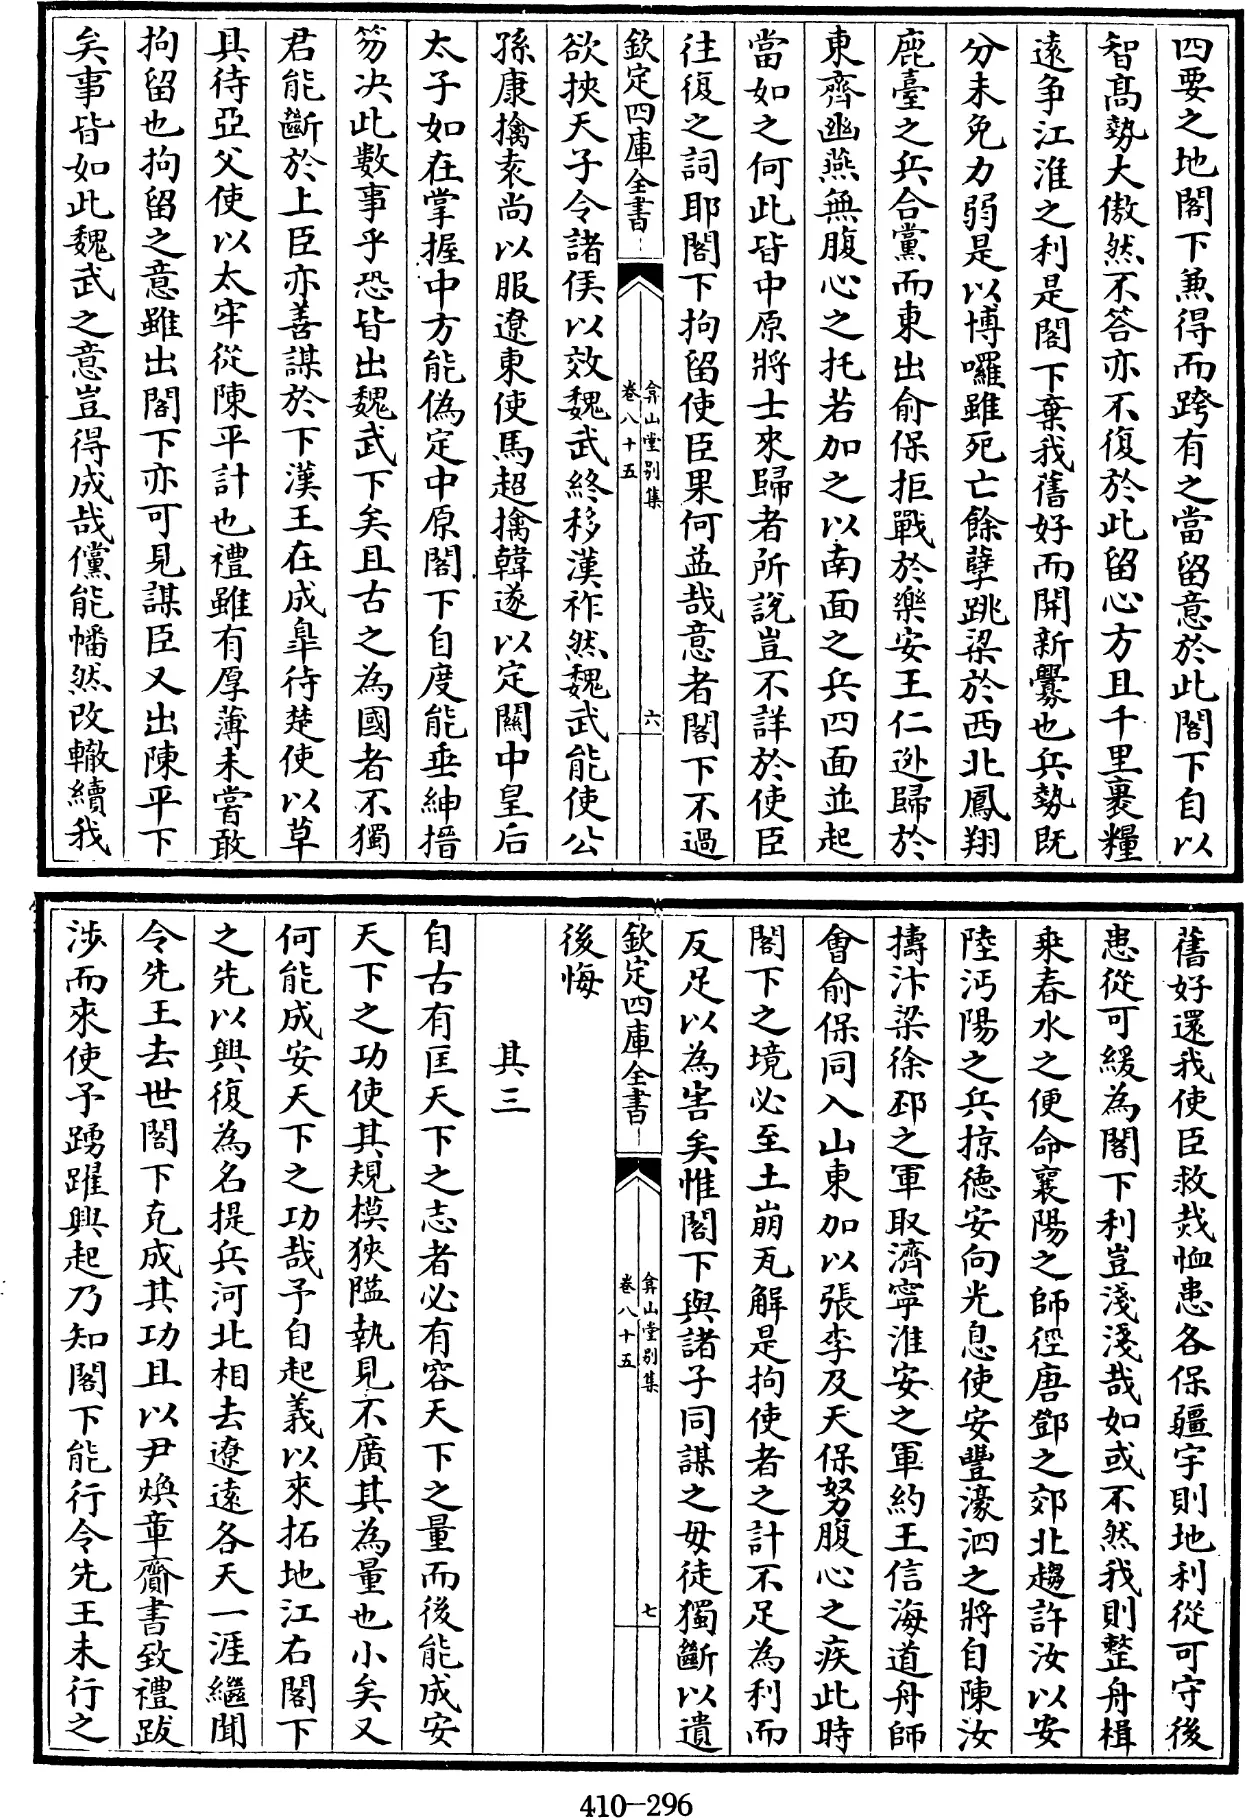 四要之地閣下兼得而跨有之當留意於此閣下自以
智髙勢大傲然不答亦不復於此留心方且千里裹糧
逺争江淮之利是閣下棄我舊好而開新釁也兵勢既
分未免力弱是以博囉雖死亡餘孽跳梁於西北鳳翔
鹿臺之兵合黨而東出俞保拒戰於樂安王仁逊歸於
東齊幽燕無腹心之托若加之以南面之兵四面並起
當如之何此皆中原將士來歸者所説豈不詳於使臣
往復之詞耶閣下拘留使臣果何益哉意者閣下不過
欽定四庫全書
弇山堂别集
卷八十五
六
欲挾天子令諸侯以效魏武終移漢祚然魏武能使公
孫康擒袁尚以服遼東使馬超擒韓遂以定關中皇后
太子如在掌握中方能偽定中原閣下自度能垂紳搢
笏决此數事乎恐皆出魏武下矣且古之為國者不獨
君能斷於上臣亦善謀於下漢王在成臯待楚使以草
具待亞父使以太牢從陳平計也禮雖有厚薄未嘗敢
拘留也拘留之意雖出閣下亦可見謀臣又出陳平下
矣事皆如此魏武之意豈得成哉儻能幡然改轍續我
舊好還我使臣救烖恤患各保疆宇則地利從可守後
患從可緩為閣下利豈淺淺哉如或不然我則整舟楫
乘春水之便命襄陽之師徑唐鄧之郊北趨許汝以安
陸沔陽之兵掠徳安向光息使安豐濠泗之將自陳汝
擣汴梁徐邳之軍取濟寧淮安之軍約王信海道舟師
㑹俞保同入山東加以張李及天保努腹心之疾此時
閣下之境必至土崩瓦解是拘使者之計不足為利而
反足以為害矣惟閣下與諸子同謀之毋徒獨斷以遺
欽定四庫全書
弇山堂别集
卷八十五
七
後悔
其三
自古有匡天下之志者必有容天下之量而後能成安
天下之功使其規模狹隘執見不廣其為量也小矣又
何能成安天下之功哉予自起義以來拓地江右閣下
之先以興復為名提兵河北相去遼逺各天一涯繼聞
令先王去世閣下克成其功且以尹煥章齎書致禮跋
涉而來使予踴躍興起乃知閣下能行令先王未行之
410—296